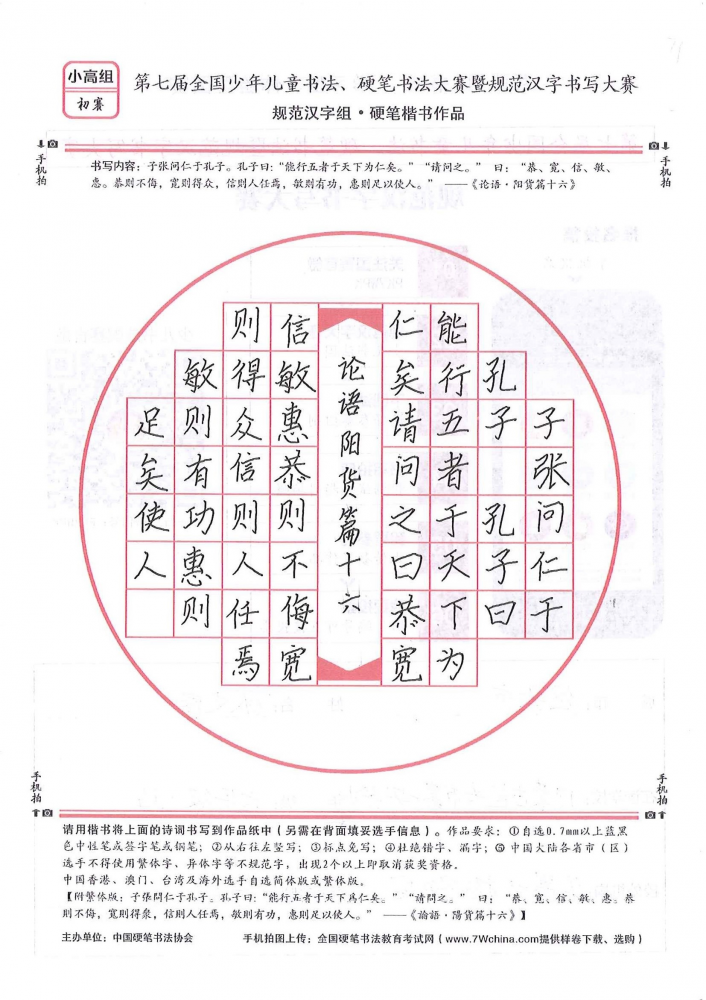 小高组
初赛
第七届全国少年儿童书法、硬笔书法大赛暨规范汉字书写大赛
规范汉字组·硬笔楷书作品
手机拍
手机拍
书写内容：子张问仁于孔子。孔子曰：“能行五者于天下为仁矣。” “请问之。” 曰：“恭、宽、信、敏、
惠。恭则不侮，宽则得众，信则人任焉，敏则有功，惠则足以使人。” ——《论语·阳货篇十六》
子张问仁于
孔子 孔子曰
能行五者于天下为
仁矣请问之曰恭宽
论语阳货篇十六
信敏惠恭则不侮宽
则得众信则人任焉
敏则有功惠则
足矣使人
手机拍
手机拍
请用楷书将上面的诗词书写到作品纸中（另需在背面填妥选手信息）。作品要求：①自选0.7mm以上蓝黑
色中性笔或签字笔或钢笔；②从右往左竖写；③标点免写；④杜绝错字、漏字；⑤中国大陆各省市（区）
选手不得使用繁体字、异体字等不规范字，出现2个以上即取消获奖资格.
中国香港、澳门、台湾及海外选手自选简体版或繁体版。
【附繁体版：子張問仁于孔子。孔子曰：“能行五者于天下爲仁矣。” “請問之。” 曰：“恭、寬、信、敏、惠。恭
則不侮，寬則得衆，信則人任焉，敏則有功，惠則足以使人。” ——《論語·陽貨篇十六》】
主办单位：中国硬笔书法协会
手机拍图上传：全国硬笔书法教育考试网（www.7Wchina.com提供样卷下载、选购）